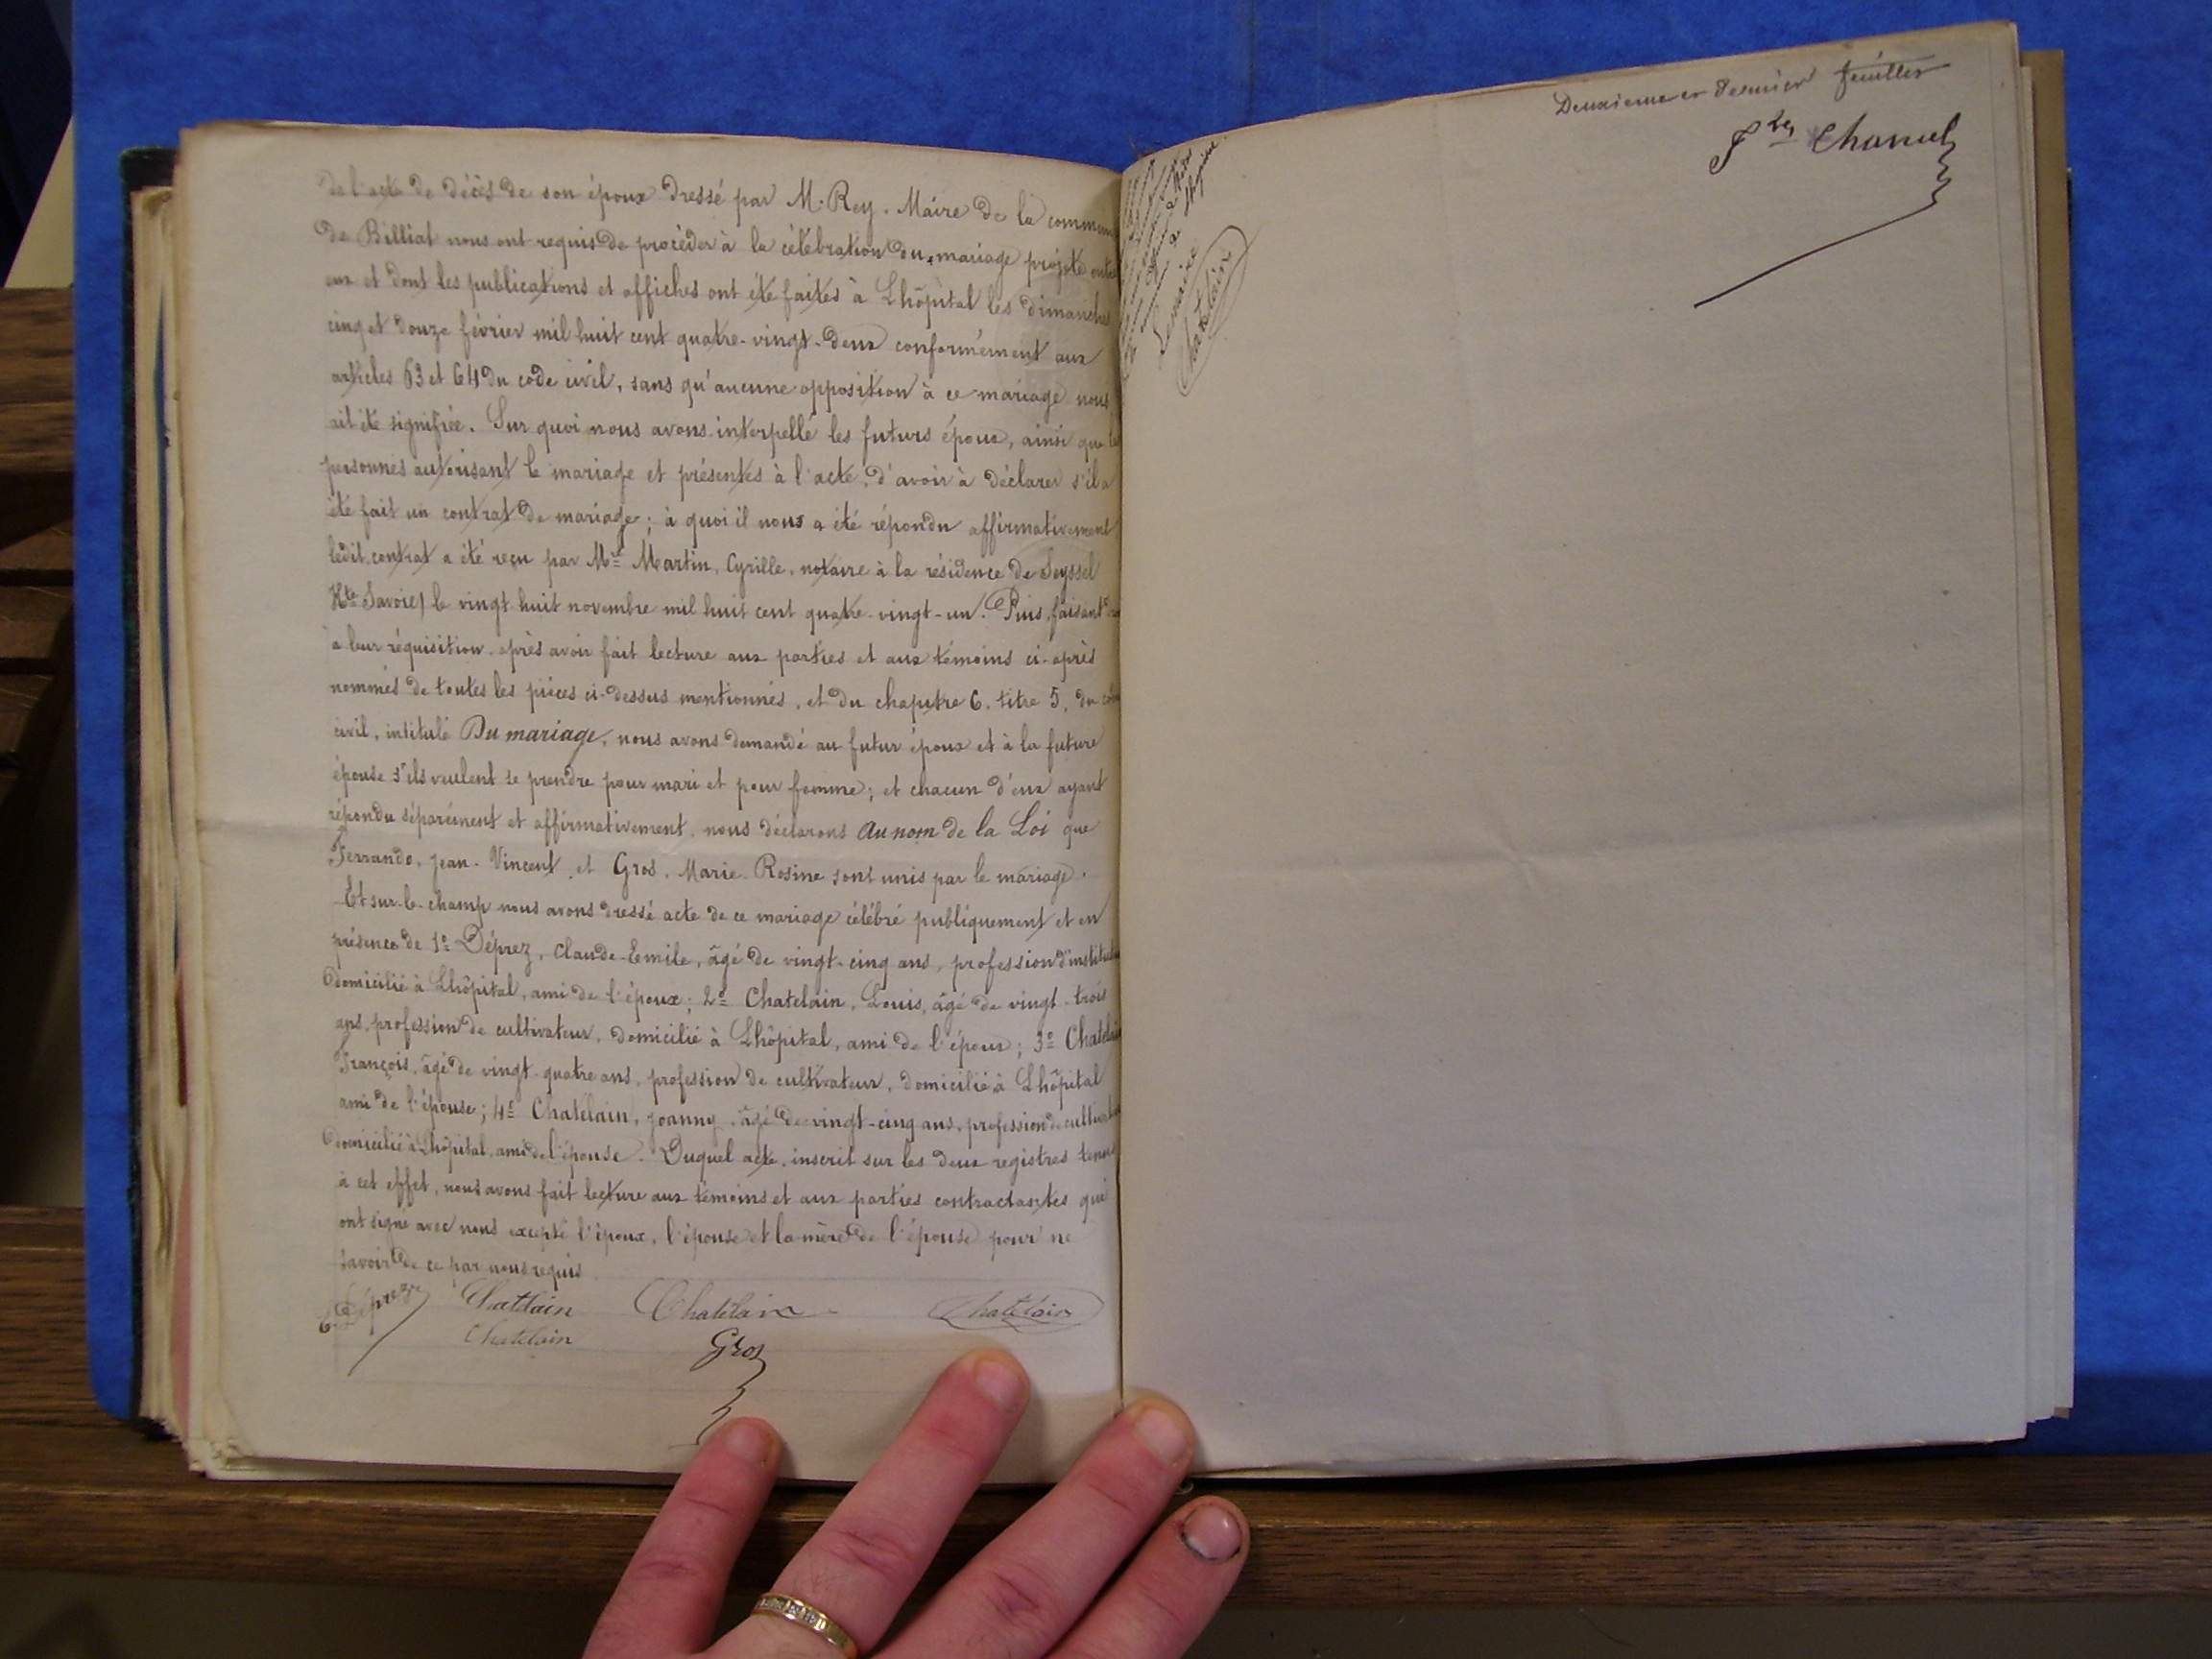 de l'acte de décès de son époux dressé par M. Rey, Maire de la commun
de Billiat nous ont requis de procéder à la célébration du mariage projeté entre
eux et dont les publications et affiches ont été faites à Lhôpital les dimanches
cinq et douze février mil huit cent quatre-vingt-deux conformément aux
articles 63 et 64 du code civil, sans qu'aucune opposition à ce mariage nous
ait été signifiée. Sur quoi nous avons interpellé les futurs époux, ainsi que les
personnes autorisant le mariage et présentes à l'acte, d'avoir à déclarer s'il a
été fait un contrat de mariage; à quoi il nous a été répondu affirmativement
ledit contrat a été reçu par Me Martin, Cyrille, notaire à la résidence de Seyssel
Hte Savoie) le vingt huit novembre mil huit cent quatre-vingt-un. Puis, faisant
à leur réquisition, après avoir fait lecture aux parties et aux témoins ci-après
nommés de toutes les pièces ci-dessus mentionnés, et du chapitre 6, titre 5, du code
civil, intitulé Du mariage, nous avons demandé au futur époux et à la future
épouse s'ils veulent se prendre pour mari et pour femme; et chacun d'eux ayant
répondu séparément et affirmativement, nous déclarons au nom de la Loi que
Ferrando, Jean-Vincent, et Gros, Marie-Rosine sont unis par le mariage.
Et sur-le-champ nous avons dressé acte de ce mariage célébré publiquement et en
présence de 1º Déprez, Claude-Emile, âgé de vingt-cinq ans, profession d'institut
domicilié à Lhôpital, ami de l'époux; 2º Chatelain, Louis, âgé de vingt-trois
ans, profession de cultivateur, domicilié à Lhôpital, ami de l'époux; 3º Chatelain
François, âgé de vingt-quatre ans, profession de cultivateur, domicilié à Lhôpital
ami de l'épouse; 4º Chatelain, Joanny, âgé de vingt-cinq ans, profession de cultivat
domicilié à Lhôpital, ami de l'épouse. Duquel acte, inscrit sur les deux registres tenus
à cet effet, nous avons fait lecture aux témoins et aux parties contractantes qui
ont signé avec nous excepté l'époux, l'épouse et la mère de l'épouse pour ne
savoir de ce par nous requis
Déprez Chatelain Chatelain Chatelain
Chatelain
Gros
Le maire
Chatelain
Deuxième et dernier feuillet
Chanel